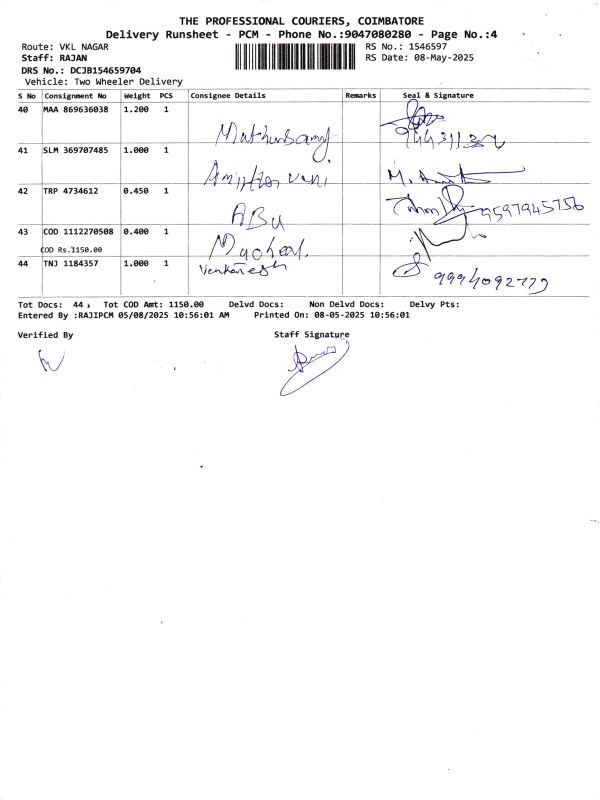 THE PROFESSIONAL COURIERS, COIMBATORE
Delivery Runsheet - PCM - Phone No.:9047080280 - Page No.:4
Route: VKL NAGAR RS No.: 1546597
Staff: RAJAN RS Date: 08-May-2025
DRS No.: DCJB154659704
Vehicle: Two Wheeler Delivery
S No Consignment No Weight PCS Consignee Details Remarks Seal & Signature
40 MAA 869636038 1.200 1
41 SLM 369707485 1.000 1
42 TRP 4734612 0.450 1 ABu 9597945756
43 COD 1112270508 0.400 1
COD Rs.1150.00
44 TNJ 1184357 1.000 1 Venkatesh 9994092779
Tot Docs: 44 Tot COD Amt: 1150.00 Delvd Docs: Non Delvd Docs: Delvy Pts:
Entered By :RAJIPCM 05/08/2025 10:56:01 AM Printed On: 08-05-2025 10:56:01
Verified By Staff Signature